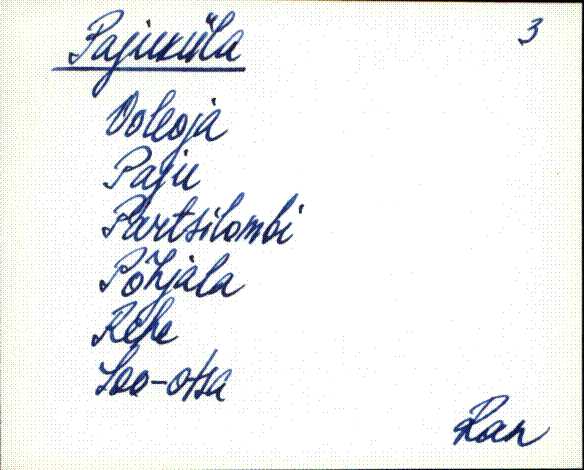 Pajuküla 3
Ooleoja
Paju
Partsilombi
Põhjala
Rehe
Soo-otsa
Ran